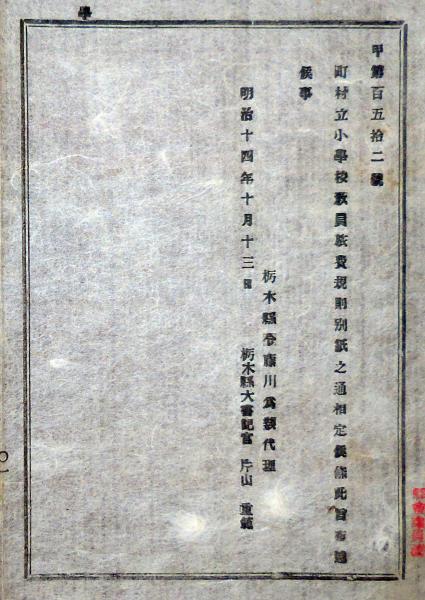 學
甲第百五拾二號
町村立小學校敎員旅費規則別紙之通相定候條此旨布達
候事
明治十四年十月十三日
栃木縣令藤川爲親代理
栃木縣大書記官 片山 重範